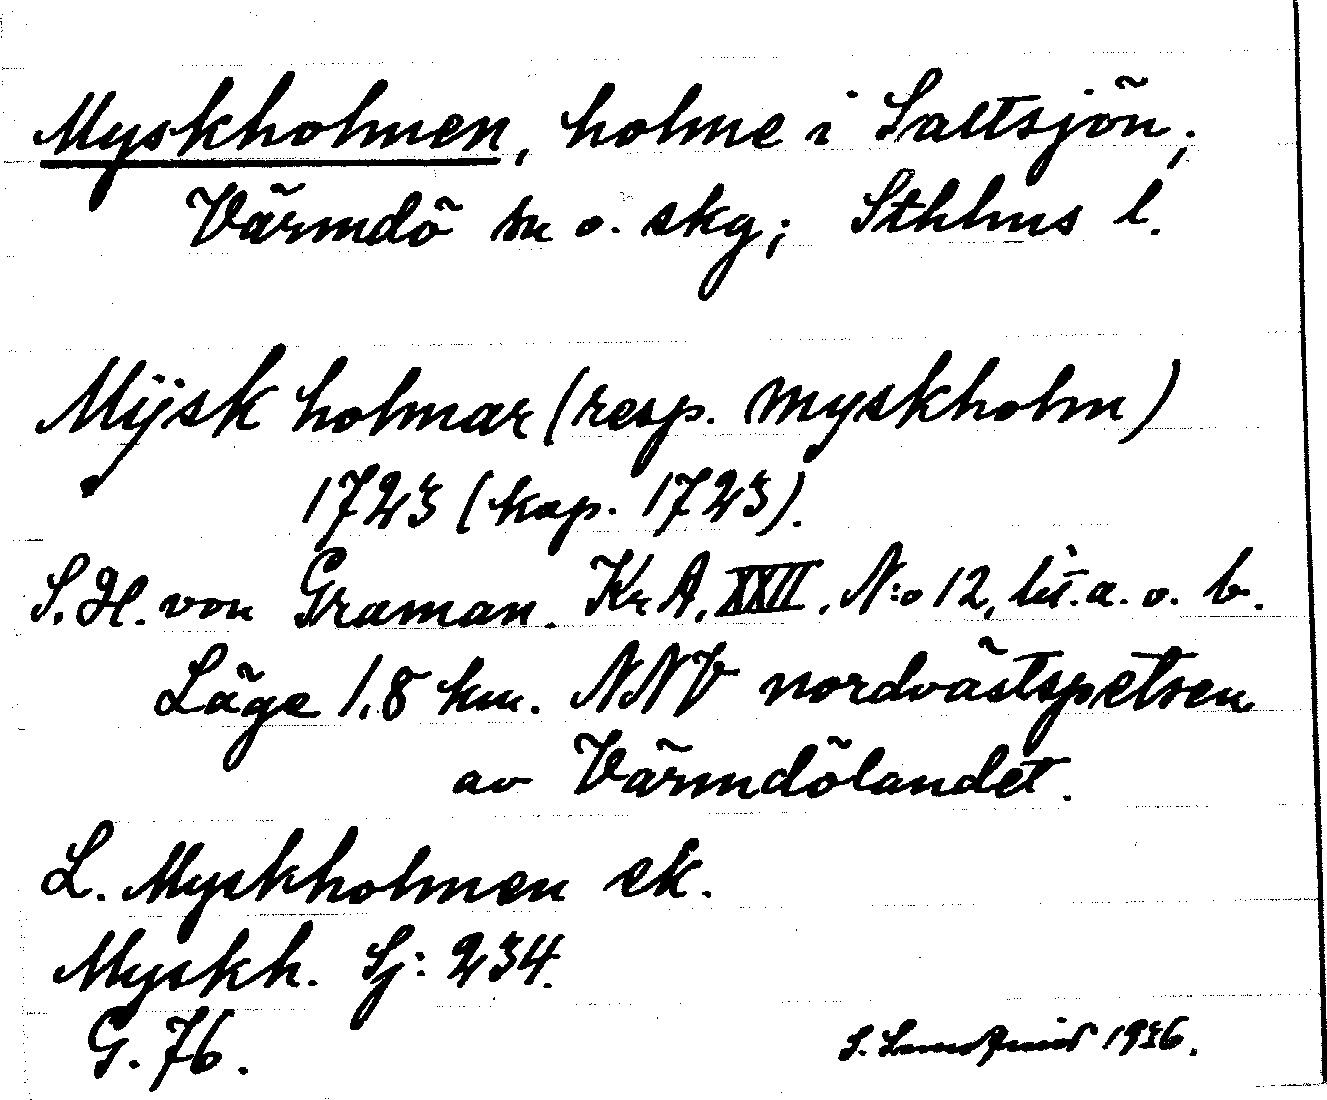 Myskholmen, holme i Saltsjön;
Värmdö sn o. skg; Sthlms l.
Mÿsk holmar (resp. myskholm)
1723 (kop. 1723).
S.H. von Graman. KrA, XXII. N:o 12, lit. a. o. b.
Läge 1,8 km. NNV nordvästspetsen
av Värmdölandet.
L. Myskholmen ek.
Myskh. Sj: 234.
G. 76.
S. 1936.